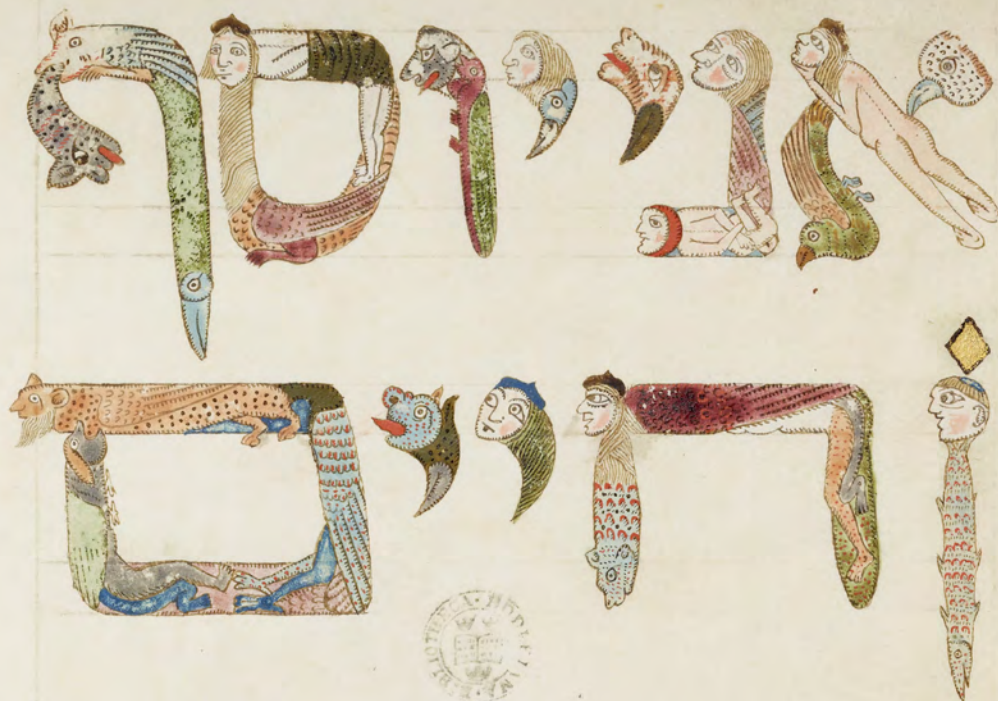 אני יוסף
ן׳ חיים
BIBLIOTHECA · BODLEIANA